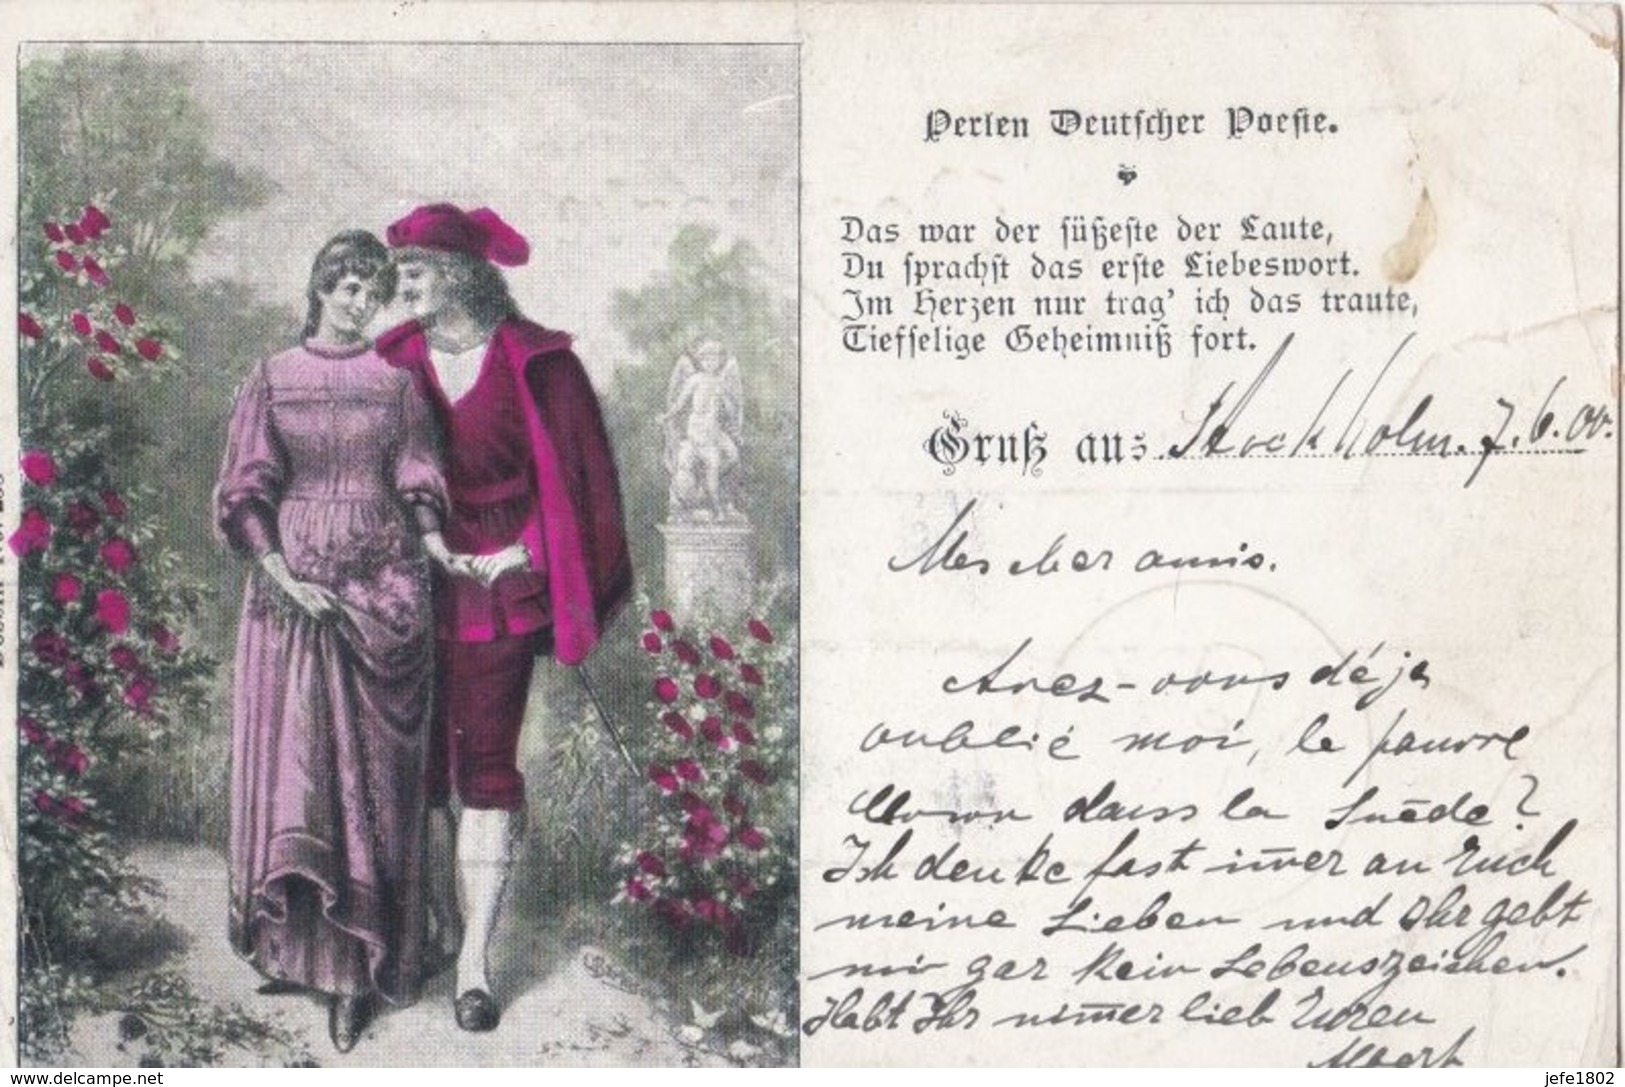 Perlen Deutscher Poesie.
Das war der süßeste der Laute,
Du sprachst das erste Liebeswort.
Im Herzen nur trag' ich das traute,
Tiefselige Geheimniß fort.
Gruß aus Stockholm. 7.6.00.
Mes cher amis.
Avez-vous déja
oublié moi, le pauvre
dans la Suède?
Ich denke fast im̄er an Euch
meine Lieben und Ihr gebt
mir gar kein Lebenszeichen.
Habt Ihr nim̄er lieb Euren
www.delcampe.net
jefe1802